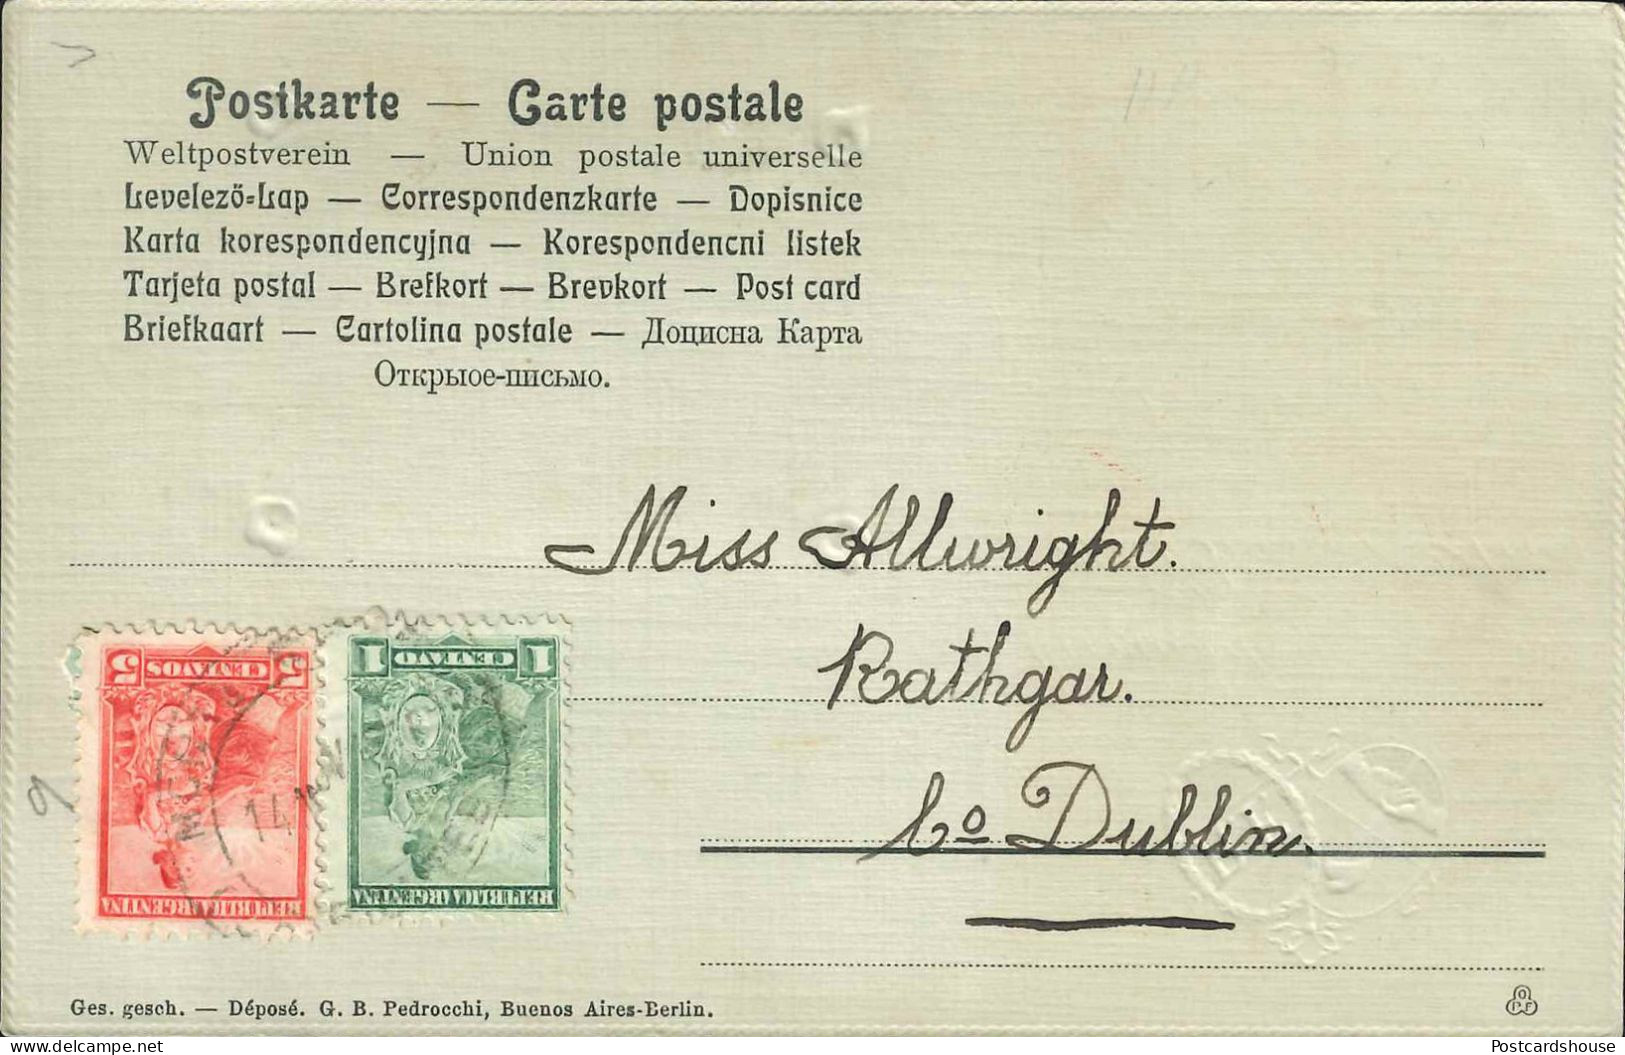 Postkarte — Carte postale
Weltpostverein — Union postale universelle
Levelező-Lap — Correspondenzkarte — Dopisnice
Karta korespondencyjna — Korespondencni listek
Tarjeta postal — Brefkort — Brevkort — Post card
Briefkaart — Cartolina postale — Доцисна Карта
Открыое-письмо.
Miss Allwright.
Rathgar.
Co Dublin.
5 CENTAVOS 5
REPUBLICA ARGENTINA
1 CENTAVO 1
REPUBLICA ARGENTINA
14
9
Ges. gesch. — Déposé. G. B. Pedrocchi, Buenos Aires-Berlin.
O
P F
Delcampe.net
Postcardshouse